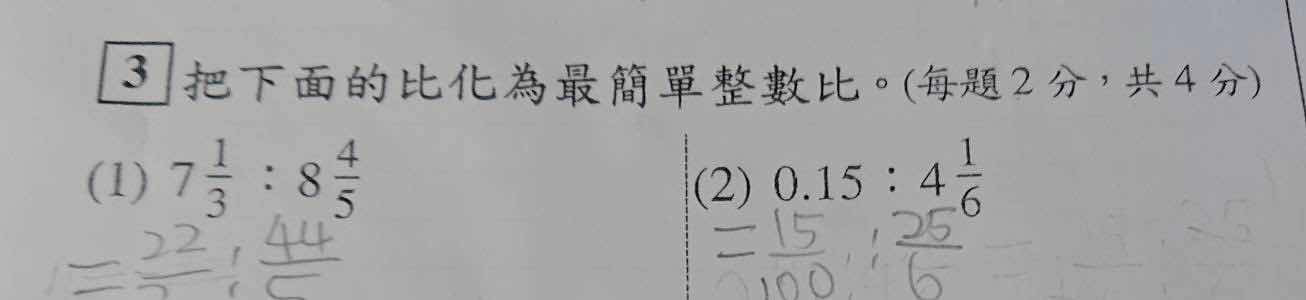 3 把下面的比化為最簡單整數比。(每題2分，共4分)
(1) 7 1/3 : 8 4/5
(2) 0.15 : 4 1/6
= 22/3 : 44/5
= 15/100 : 25/6